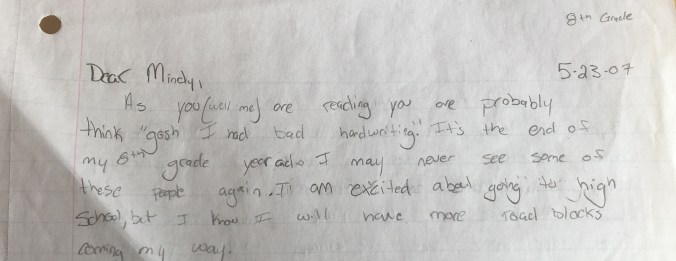 8th Grade
Dear Mindy,
5-23-07
As you (well me) are reading you are probably
think "gosh I had bad handwriting." It's the end of
my 8th grade year and I may never see some of
these people again. I am excited about going to high
School, but I know I will have more road blocks
coming my way.